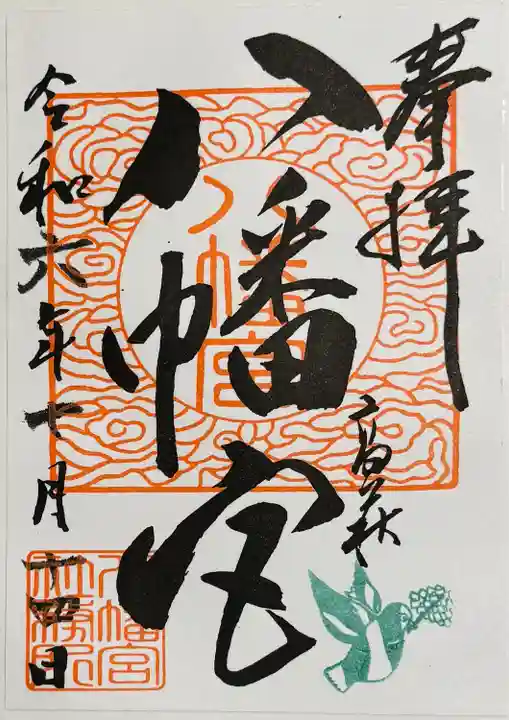 奉拝
高萩
八幡宮
八幡宮
令和六年十月十四日
八幡宮
社務所